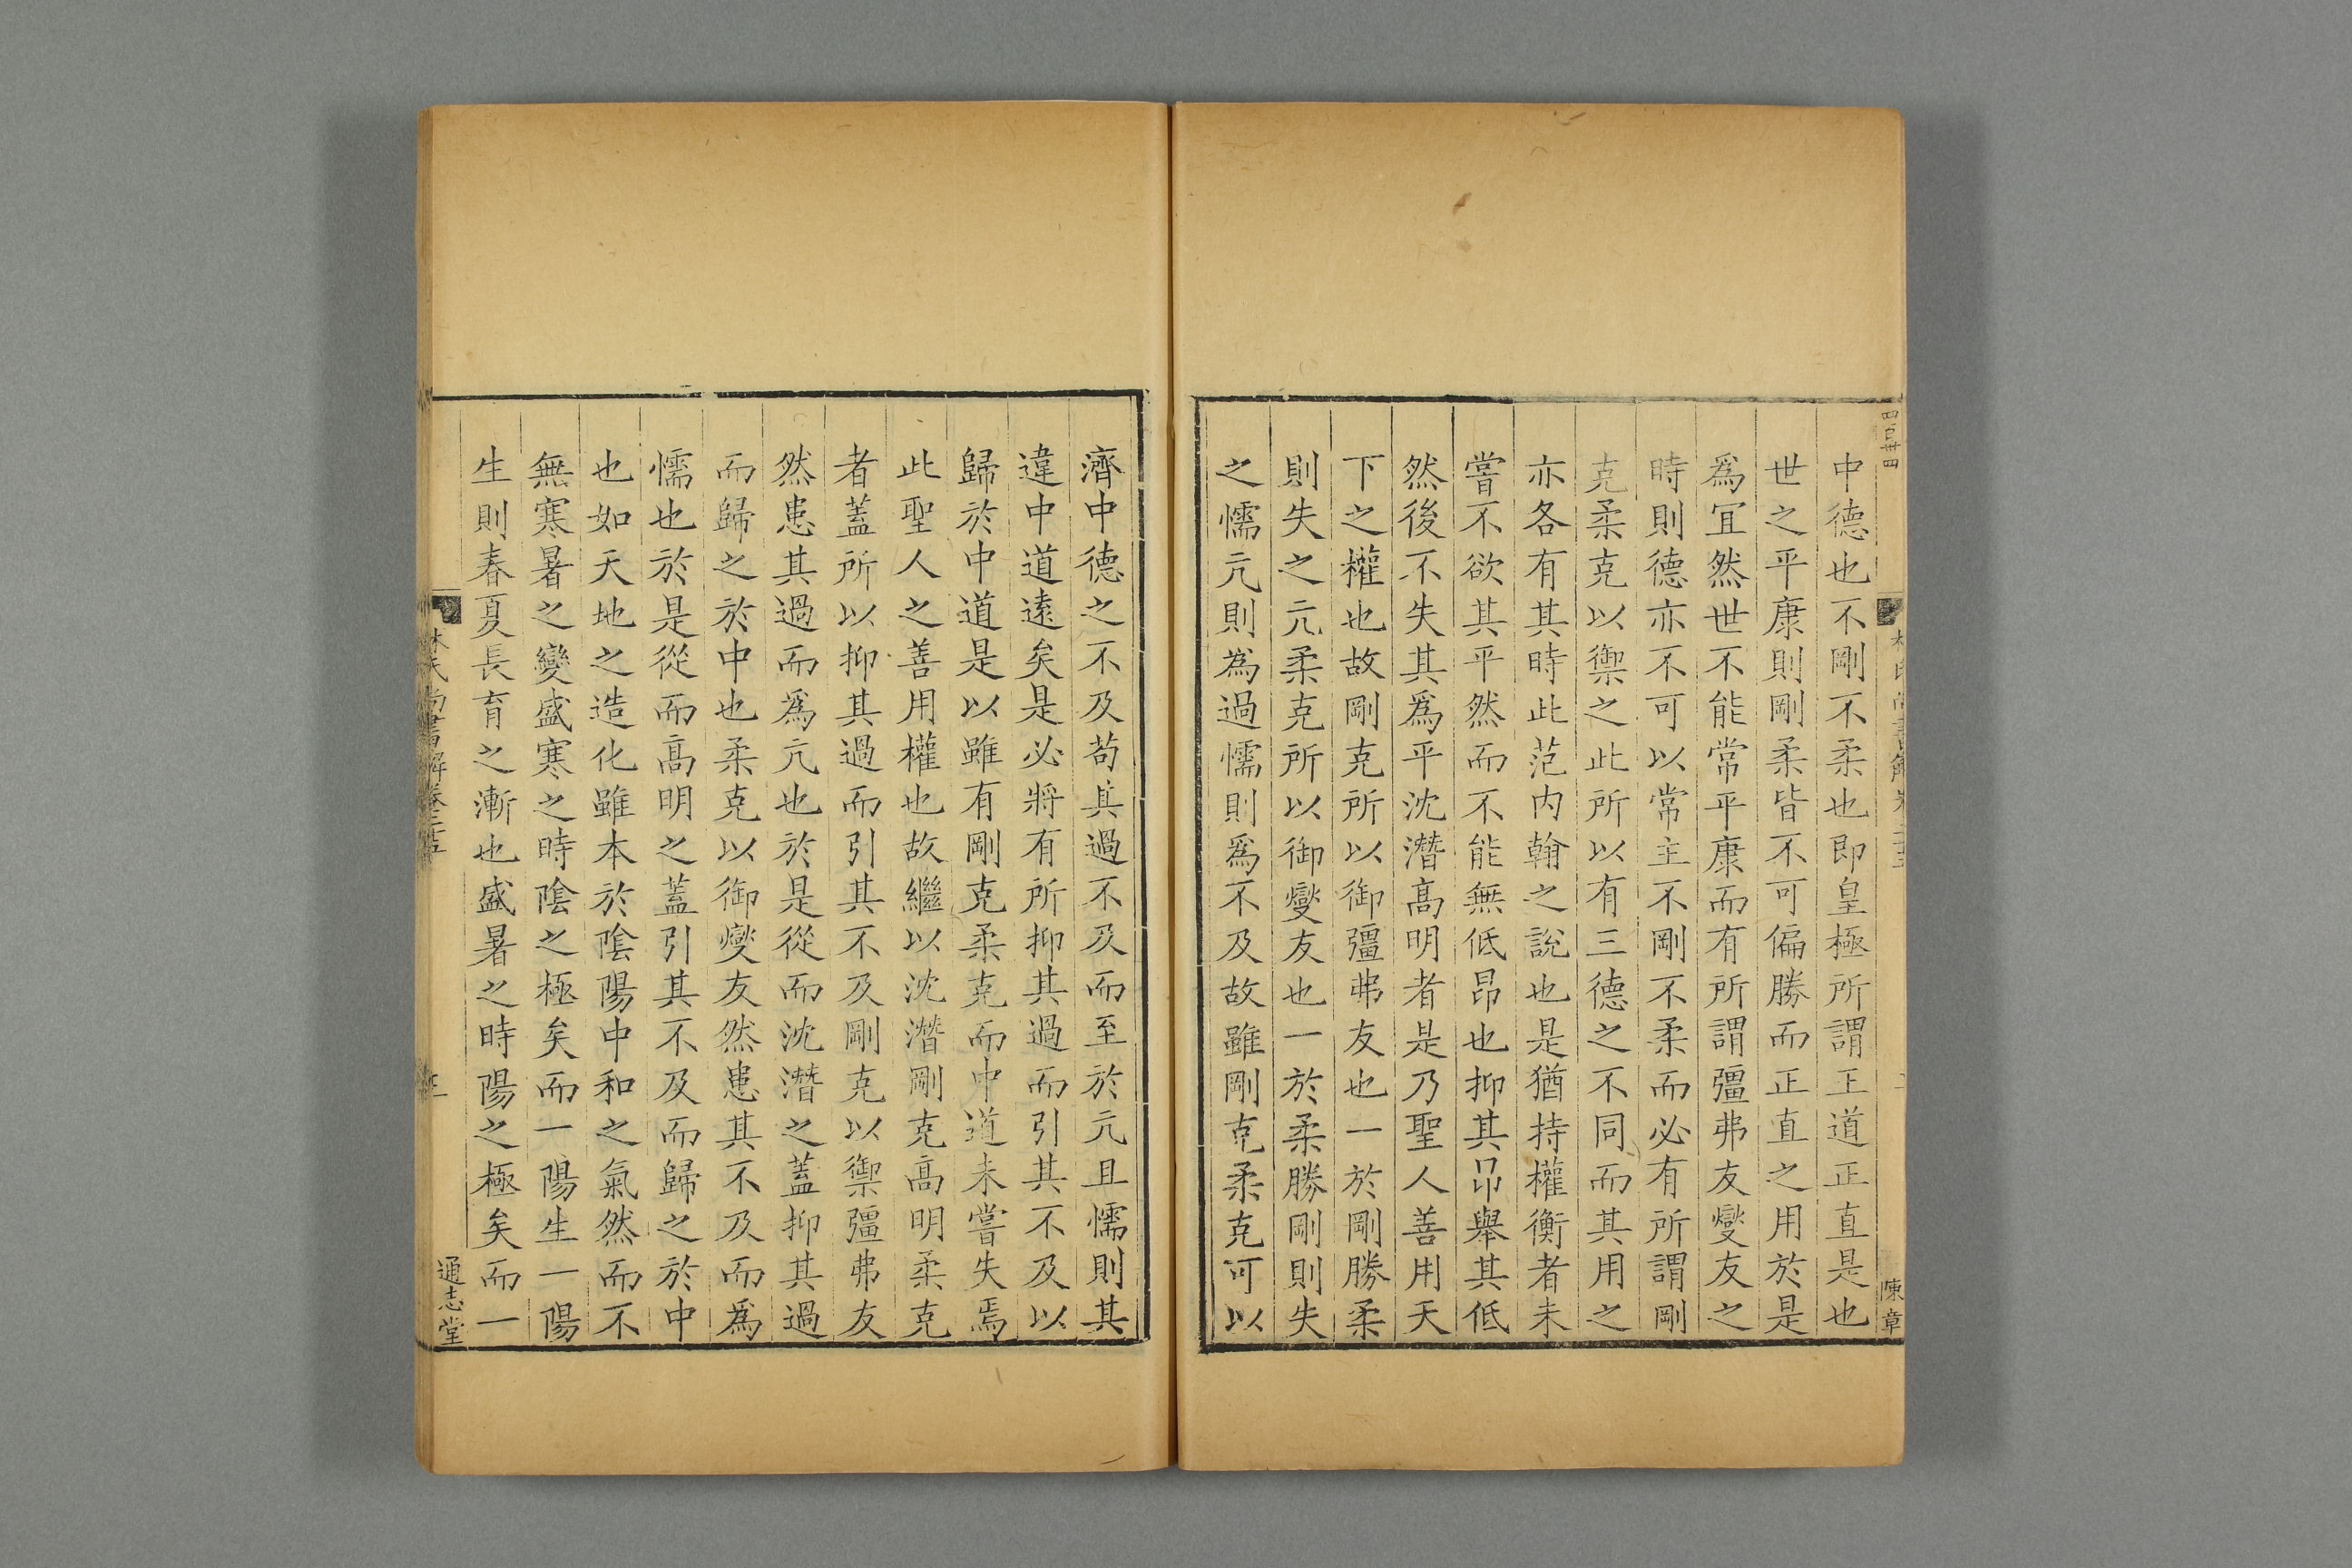 中德也不剛不柔也即皇極所謂王道正直是也
世之平康則剛柔皆不可偏勝而正直之用於是
爲冝然世不能常平康而有所謂彊弗友燮友之
時則德亦不可以常主不剛不柔而必有所謂剛
克柔克以禦之此所以有三德之不同而其用之
亦各有其時此范内翰之說也是猶持權衡者未
嘗不欲其平然而不能無低昂也抑其昂舉其低
然後不失其爲平沈潛髙明者是乃聖人善用天
下之權也故剛克所以御彊弗友也一於剛勝柔
則失之亢柔克所以御燮友也一於柔勝剛則失
之懦亢則為過懦則爲不及故雖剛克柔克可以
濟中德之不及苟其過不及而至於亢且懦則其
違中道逺矣是必將有所抑其過而引其不及以
歸於中道是以雖有剛克柔克而中道未嘗失焉
此聖人之善用權也故繼以沈潛剛克髙明柔克
者蓋所以抑其過而引其不及剛克以禦彊弗友
然患其過而爲亢也於是從而沈潛之蓋抑其過
而歸之於中也柔克以御燮友然患其不及而爲
懦也於是從而髙明之蓋引其不及而歸之於中
也如天地之造化雖本於陰陽中和之氣然而不
無寒暑之變盛寒之時陰之極矣而一陽生一陽
生則春夏長育之漸也盛暑之時陽之極矣而一
林氏尚書解卷二十五
通志堂
陳章